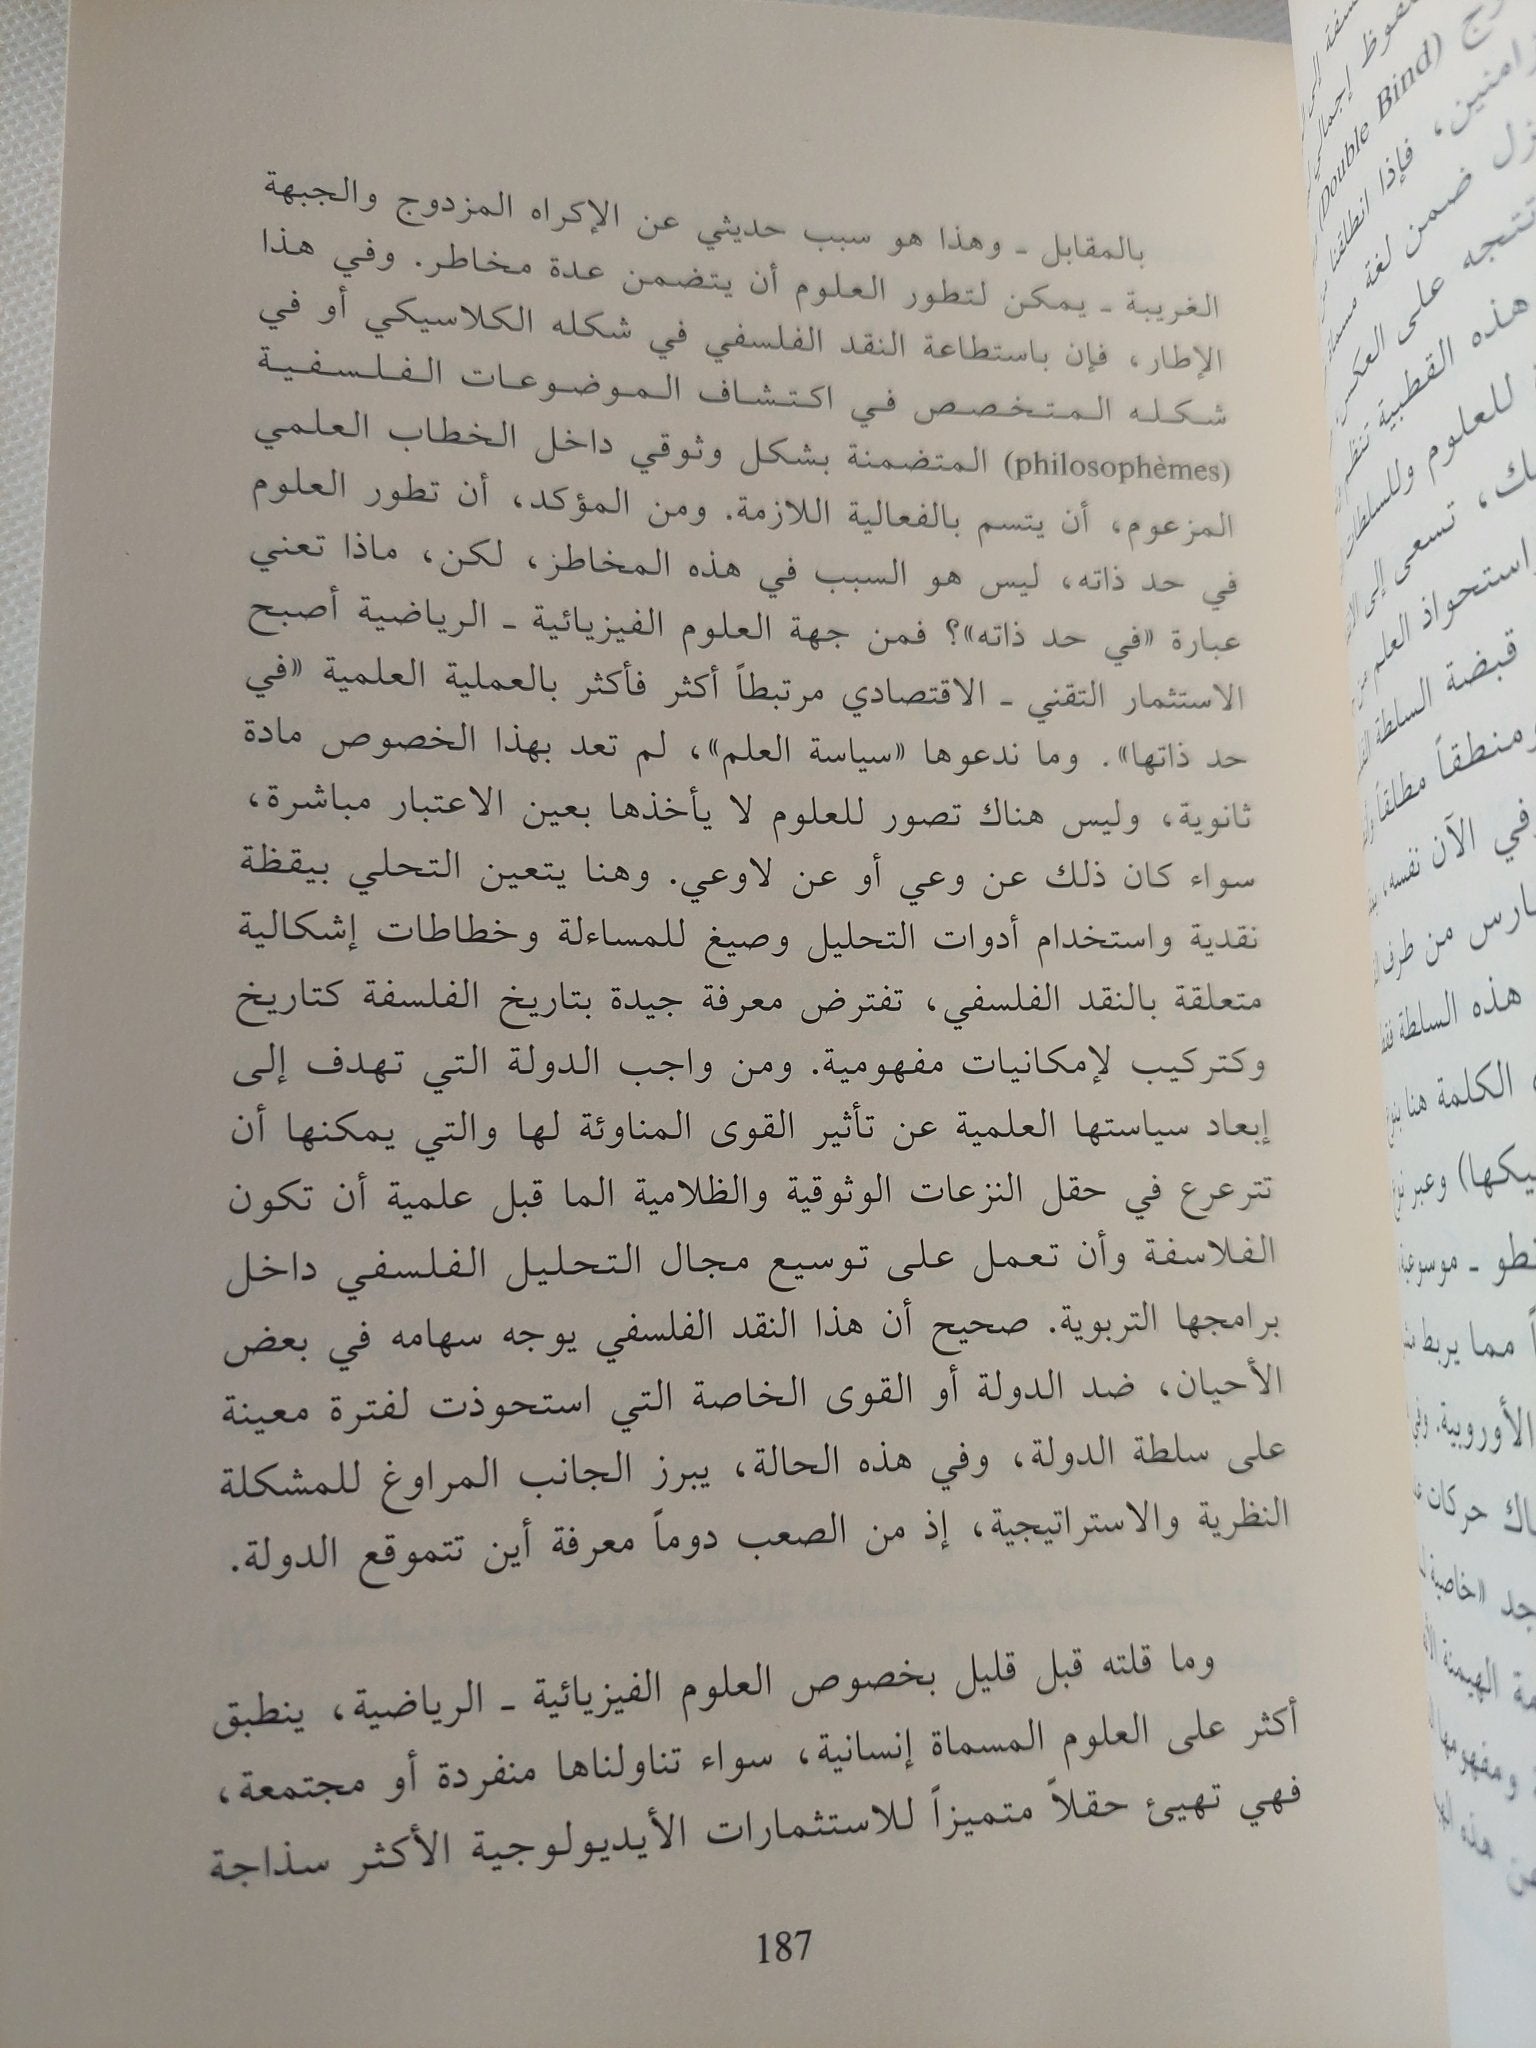 بالمقابل ـ وهذا هو سبب حديثي عن الإكراه المزدوج والجبهة
الغريبة ـ يمكن لتطور العلوم أن يتضمن عدة مخاطر. وفي هذا
الإطار، فإن باستطاعة النقد الفلسفي في شكله الكلاسيكي أو في
شكله المتخصص في اكتشاف الموضوعات الفلسفية
(philosophèmes) المتضمنة بشكل وثوقي داخل الخطاب العلمي
المزعوم، أن يتسم بالفعالية اللازمة. ومن المؤكد، أن تطور العلوم
في حد ذاته، ليس هو السبب في هذه المخاطز، لكن، ماذا تعني
عبارة «في حد ذاته»؟ فمن جهة العلوم الفيزيائية ـ الرياضية أصبح
الاستثمار التقني ـ الاقتصادي مرتبطاً أكثر فأكثر بالعملية العلمية «في
حد ذاتها». وما ندعوها «سياسة العلم»، لم تعد بهذا الخصوص مادة
ثانوية، وليس هناك تصور للعلوم لا يأخذها بعين الاعتبار مباشرة،
سواء كان ذلك عن وعي أو عن لاوعي. وهنا يتعين التحلي بيقظة
نقدية واستخدام أدوات التحليل وصيغ للمساءلة وخطاطات إشكالية
متعلقة بالنقد الفلسفي، تفترض معرفة جيدة بتاريخ الفلسفة كتاريخ
وكتركيب لإمكانيات مفهومية. ومن واجب الدولة التي تهدف إلى
إبعاد سياستها العلمية عن تأثير القوى المناوئة لها والتي يمكنها أن
تترعرع في حقل النزعات الوثوقية والظلامية الما قبل علمية أن تكون
الفلاسفة وأن تعمل على توسيع مجال التحليل الفلسفي داخل
برامجها التربوية. صحيح أن هذا النقد الفلسفي يوجه سهامه في بعض
الأحيان، ضد الدولة أو القوى الخاصة التي استحوذت لفترة معينة
على سلطة الدولة، وفي هذه الحالة، يبرز الجانب المراوغ للمشكلة
النظرية والاستراتيجية، إذ من الصعب دوماً معرفة أين تتموقع الدولة.
وما قلته قبل قليل بخصوص العلوم الفيزيائية ـ الرياضية، ينطبق
أكثر على العلوم المسماة إنسانية، سواء تناولناها منفردة أو مجتمعة،
فهي تهيئ حقلاً متميزاً للاستثمارات الأيديولوجية الأكثر سذاجة
187
إجمالي
(Double Bind)
فإذا انطلقنا
ضمن لغة
على العكس
هذه القطبية
للعلوم وللسلطات
تسعى إلى
استحواذ العلم
قبضة السلطة
ومنطقاً مطلقاً
وفي الآن نفسه،
من طرف
هذه السلطة
الكلمة هنا
وعبر
ـ موسوعية
مما يربط
الأوروبية.
حركات
«خاصية
الهيمنة
ومفهومها
هذه